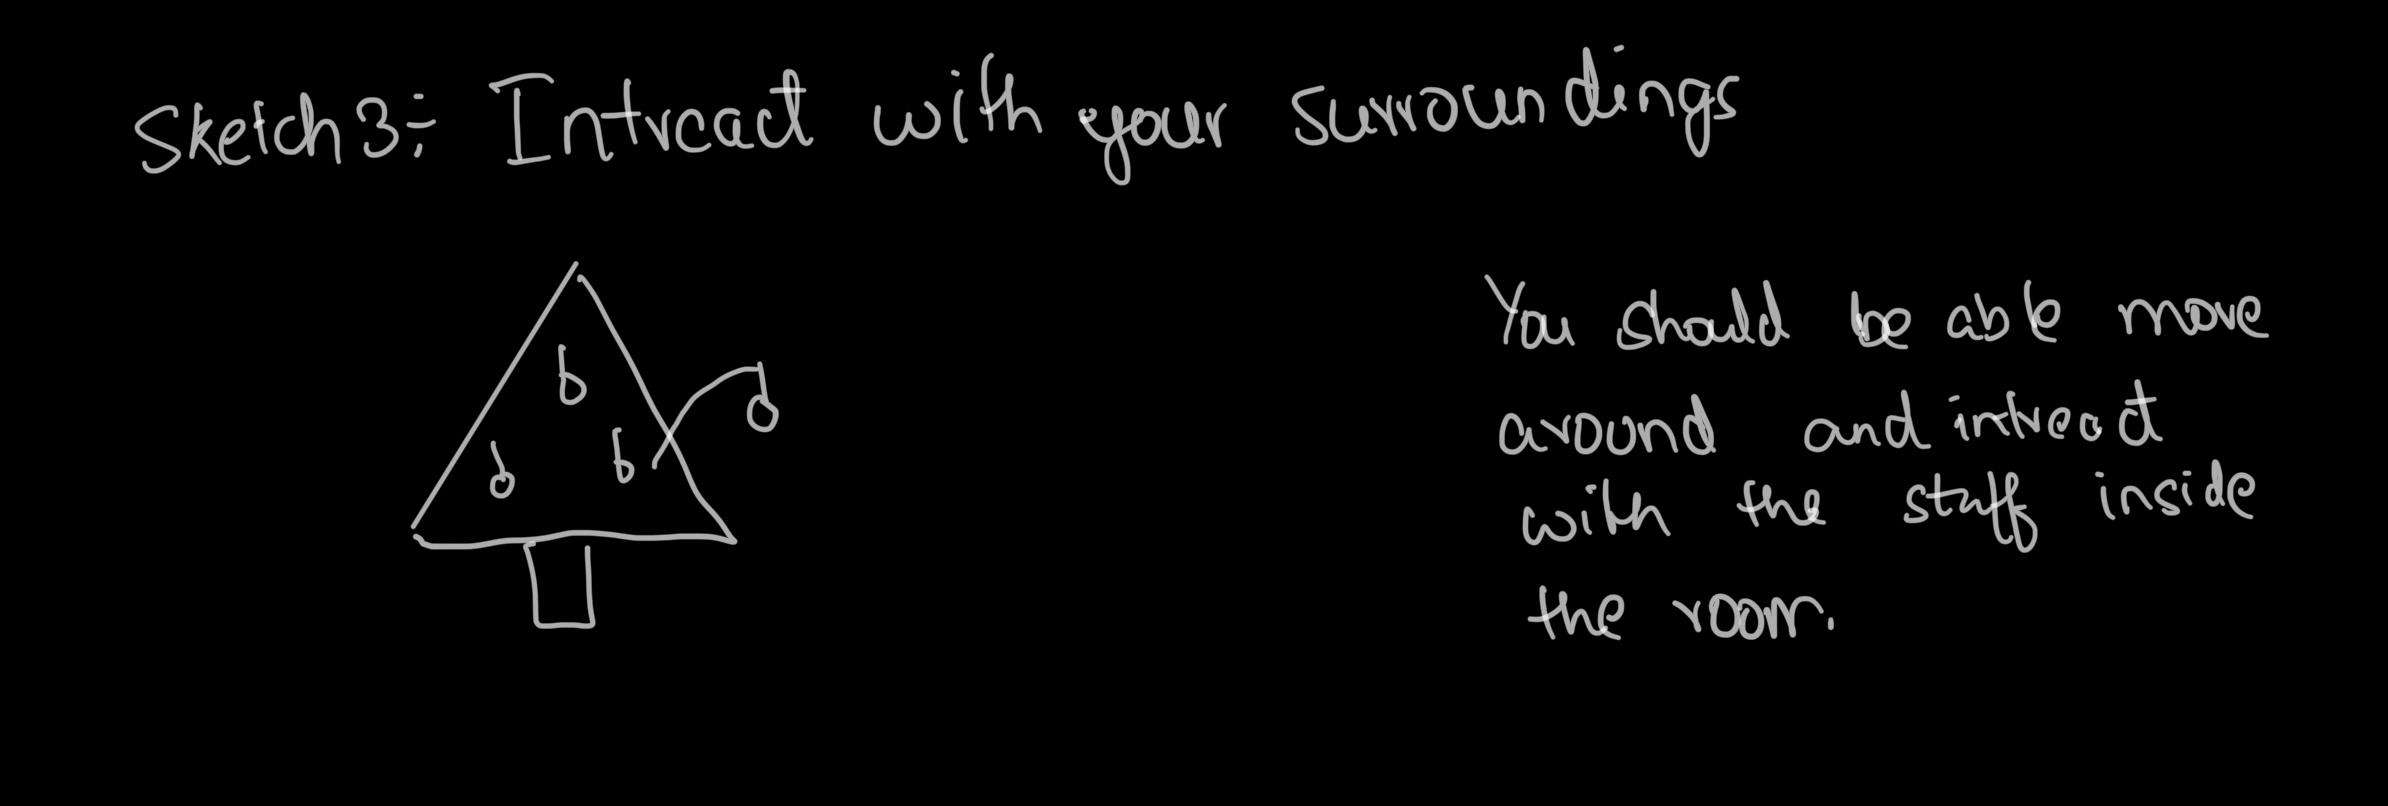 Sketch 3:- Intreact with your surroundings
You should be able move
around and intreact
with the staff inside
the room.